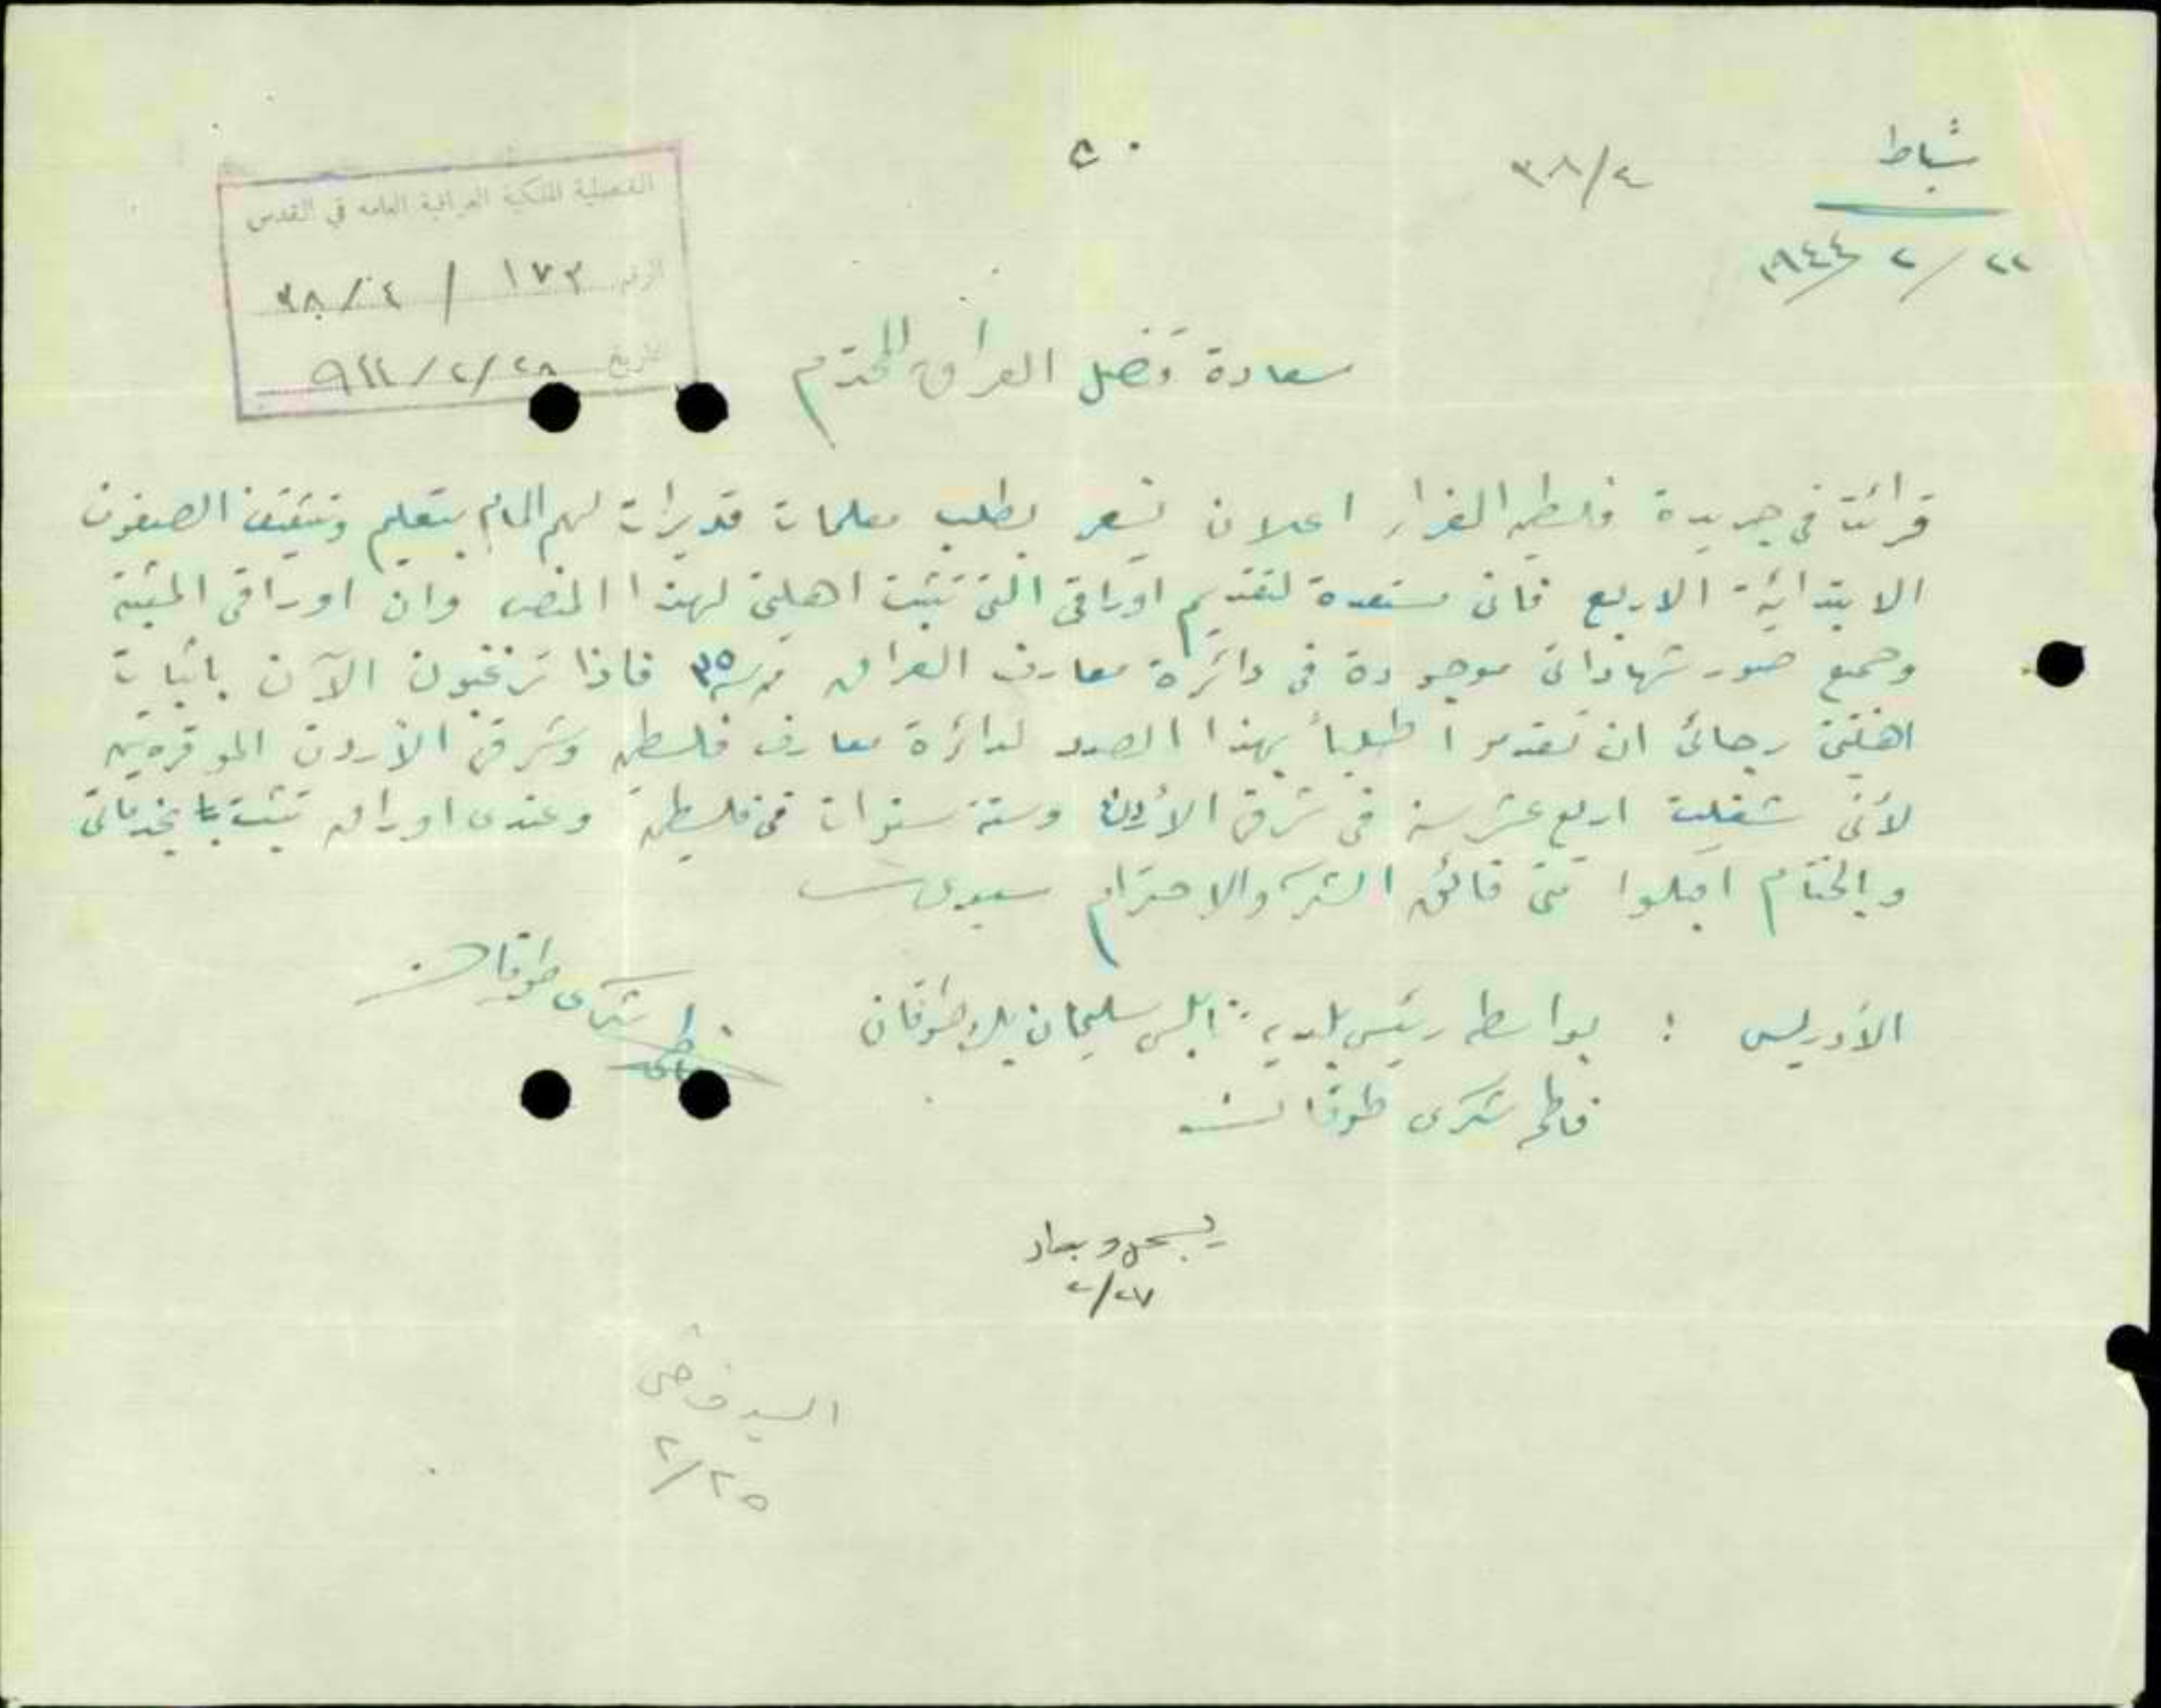 شباط
٣٨/٤
٥٠
٢٢/٢/١٩٤٤
القنصلية الملكية العراقية العامه في القدس
الرقم ١٧٣ / ٣٨/٤
التاريخ ٢٨/٢/٩٤٤
سعادة قنصل العراق المحترم
قرائت في جريدة فلسطين الغراء اعلان يشعر بطلب معلمات قديرات لهم المام بتعليم وتثقيف الصفوف
الابتدائية الاربع فانى مستعدة لتقديم اوراقى التى تثبت اهليتى لهذا المنصب وان اوراقى المثبتة
وجميع صور شهاداتى موجودة فى دائرة معارف العراق ٣٥ فاذا ترغبون الآن باثبات
اهليتى رجائى ان تقدموا طلباً بهذا الصدد لدائرة معارف فلسطين وشرق الأردن الموقرتين
لأنى شغلت اربع عشر سنة فى شرق الأردن وستة سنوات فى فلسطين وعندى اوراق تثبت خدماتى
وبالختام اقبلوا منى فائق الشكر والاحترام سيدى
فاطمة شكرى طوقان
الأدريس : بواسطة رئيس بلدية نابلس سليمان بك طوقان
فاطمة شكرى طوقان
٢/٢٧
السيد
٢/٢٥